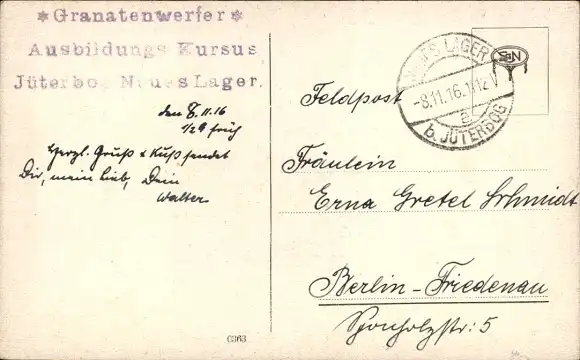 * Granatenwerfer *
Ausbildungs Kursus
Jüterbog Neues Lager.
den 8.11.16
1/29 früh
Herzl. Gruß & Kuß sendet
Dir, mein Lieb, Dein
Walter
0363
NEUES LAGER
-8.11.16.11-12V
a
b. JÜTERBOG
SBN
Feldpost
Fräulein
Erna Gretel Schmidt
Berlin-Friedenau
Sponholzstr: 5